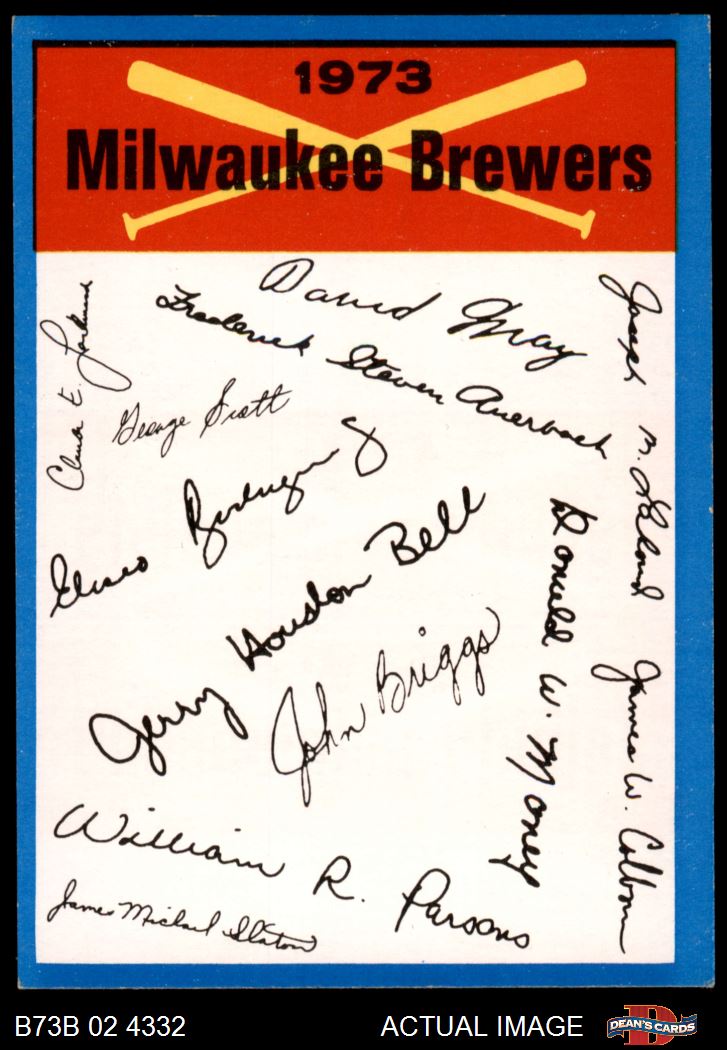 1973
Milwaukee Brewers
David May
Frederick Steven Auerbach
Joseph M. Lahoud
George Scott
Jerry Houston Bell
John Briggs
Donald W. Money
James W. Colborn
William R. Parsons
James Michael Slaton
B73B 02 4332
ACTUAL IMAGE
D
DEAN'S CARDS